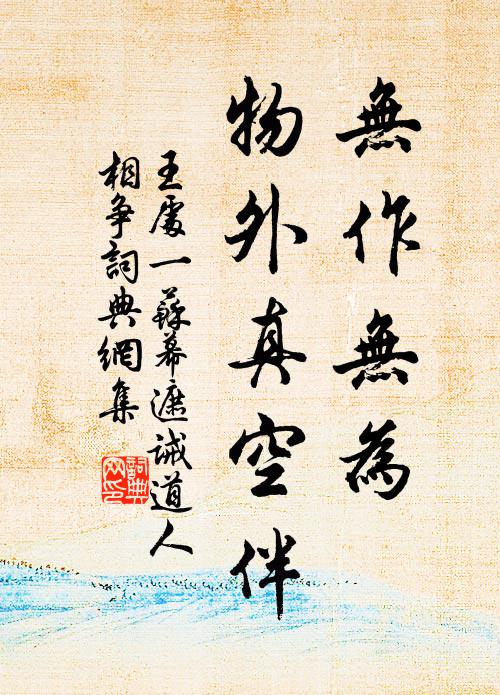 無作無為
物外真空伴
王處一蘇幕遮誡道人
相爭詞典網集
詞典
网印